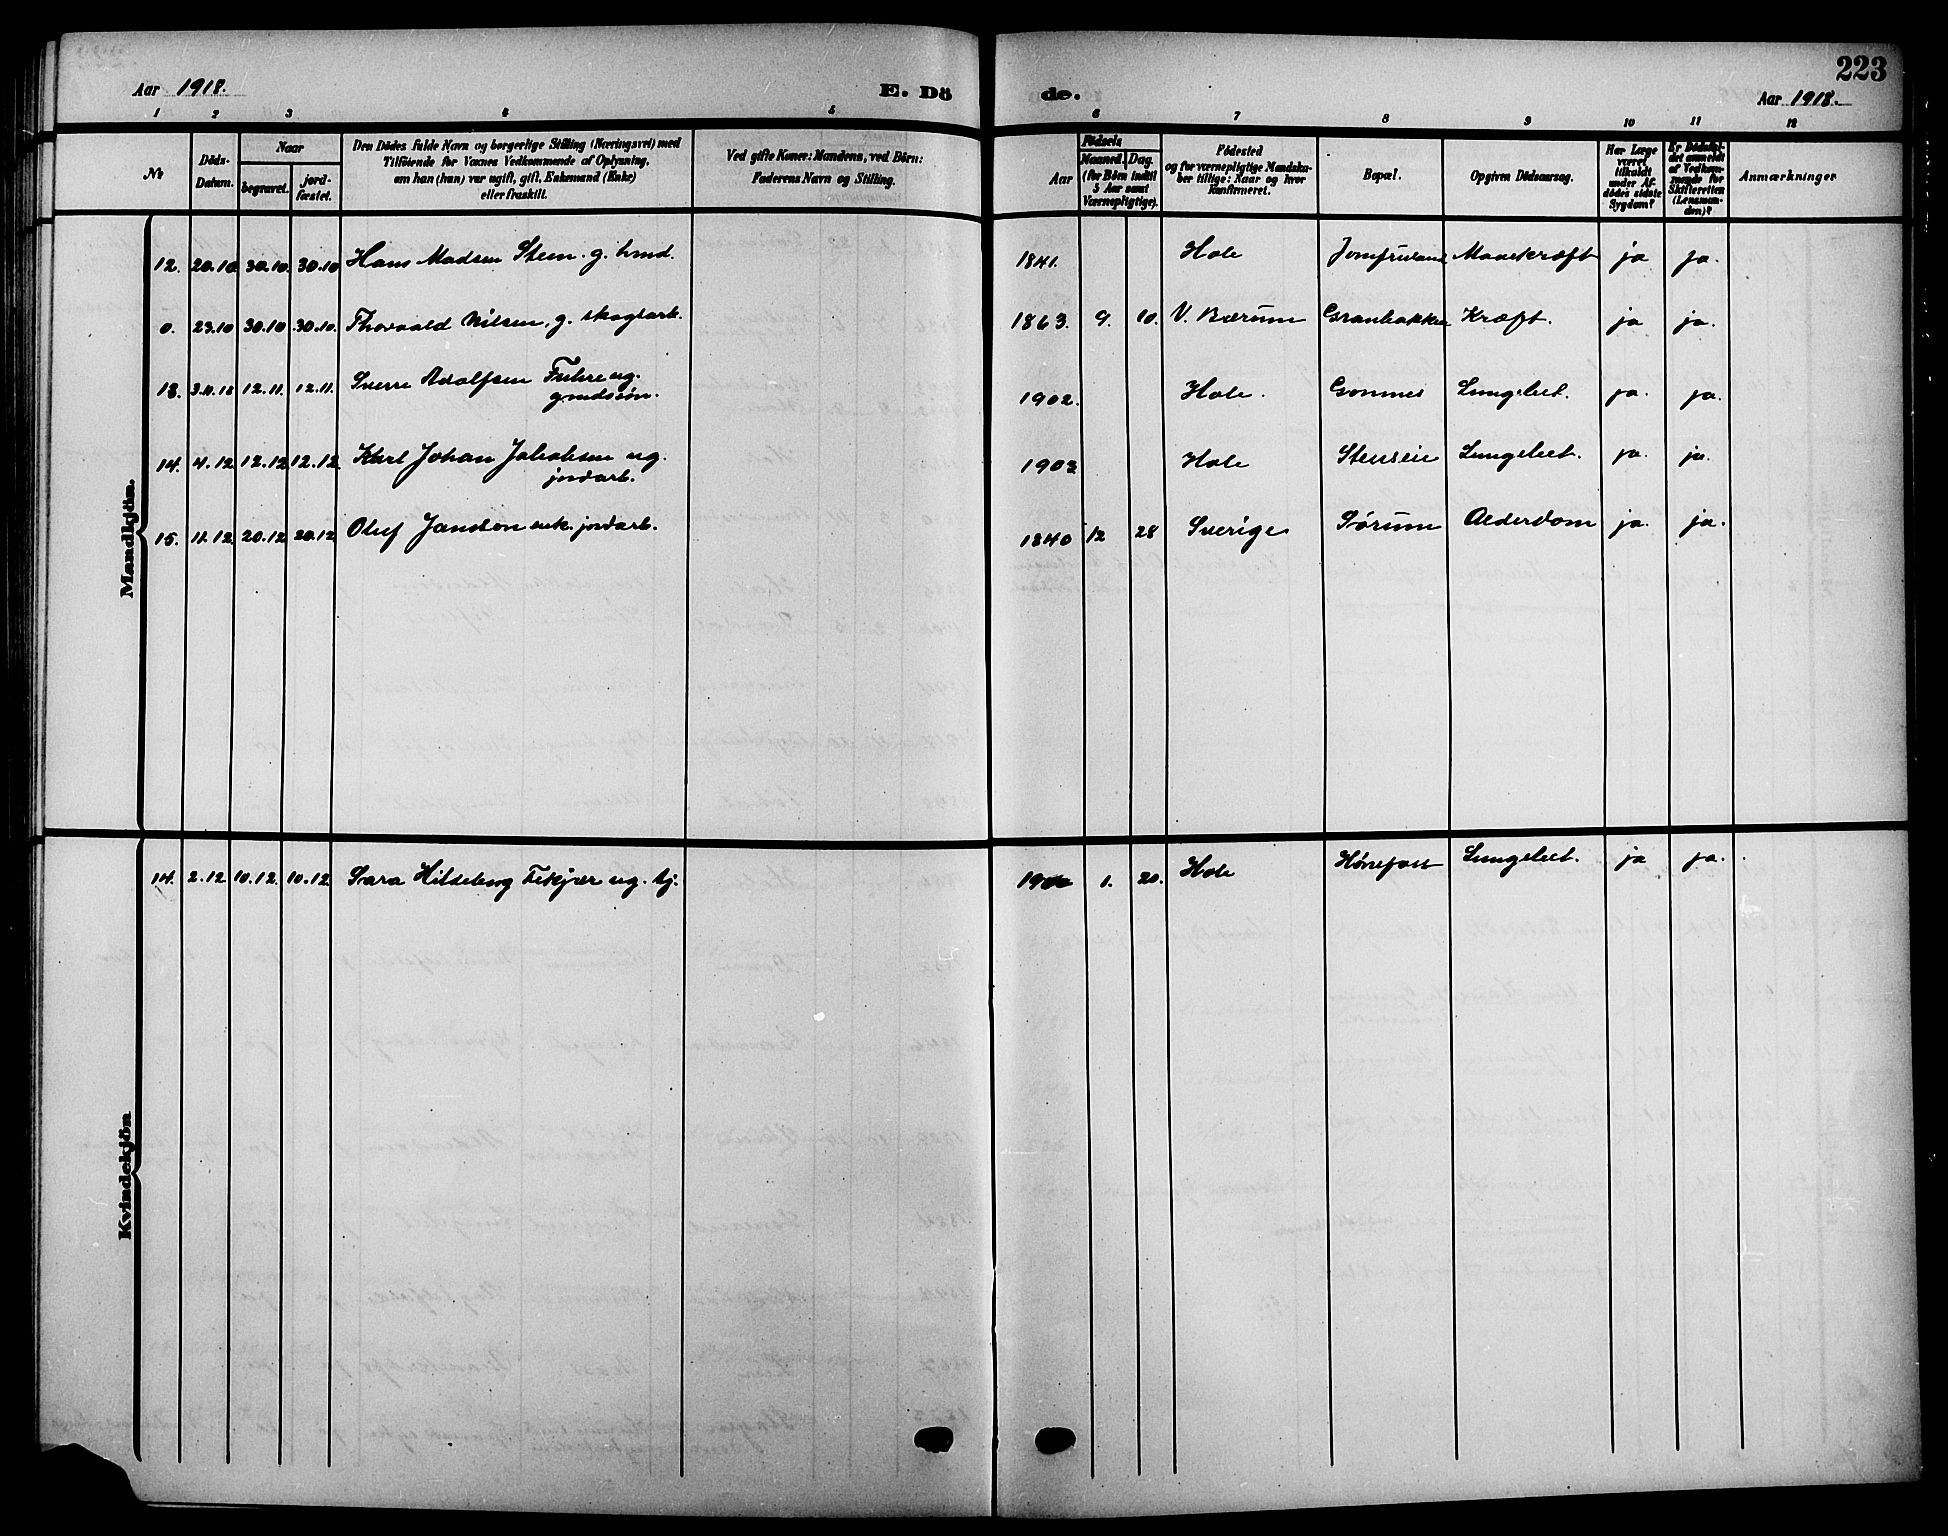 223
Aar 1918. E. Dö de. Aar 1918.
1 2 3 4 5 6 7 8 9 10 11 12
№ Döds-Datum. Naar begravet. jord-fæstet. Den Dödes fulde Navn og borgerlige Stilling (Næringsvei) med Tilföiende for Voxnes Vedkommende af Oplysning, om han (hun) var ugift, gift, Enkemand (Enke) eller fraskilt. Ved gifte Koner: Mandens, ved Börn: Faderens Navn og Stilling. Födsels Aar Maaned. Dag. (for Börn indtil 5 Aar samt Værnepligtige). Födested og for værnepligtige Mandskaber tillige: Naar og hvor konfirmeret. Bopæl. Opgiven Dödsaarsag. Har Læge været tilkaldt under Afdödes sidste Sygdom? Er Dödsfaldet anmeldt af Vedkommende for Skifteretten (Lensmanden)? Anmærkninger
Mandkjön.
12. 20.10 30.10. 30.10 Hans Madsen Steen. g. brmd. 1841. Hole Jomfruland Mavekræft ja ja.
0. 23.10 30.10 30.10. Thorvald Nilsen, g. skogsarb. 1863. 9. 10. V. Bærum Granbakken Kræft. ja ja.
13. 3.11.18 12.11. 12.11. Sverre Adolfsen Fuhre ug. gmdssøn. 1902. Hole. Gommes Lungebet. ja. ja.
14. 4.12 12.12 12.12. Karl Johan Jakobsen ug. jordarb. 1903 Hole Stenseie Lungebet. ja. ja.
15. 11.12. 20.12 20.12 Oluf Janson enk. jordarb. 1840 12 28 Sverige Sørum Alderdom ja. ja.
Kvindekjön
14. 2.12 10.12. 10.12 Sara Hildeborg Fekjær ug. tj. 1. 20. Hole Hønefoss Lungebet. ja ja.